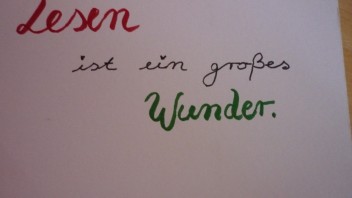 Lesen
ist ein großes
Wunder.